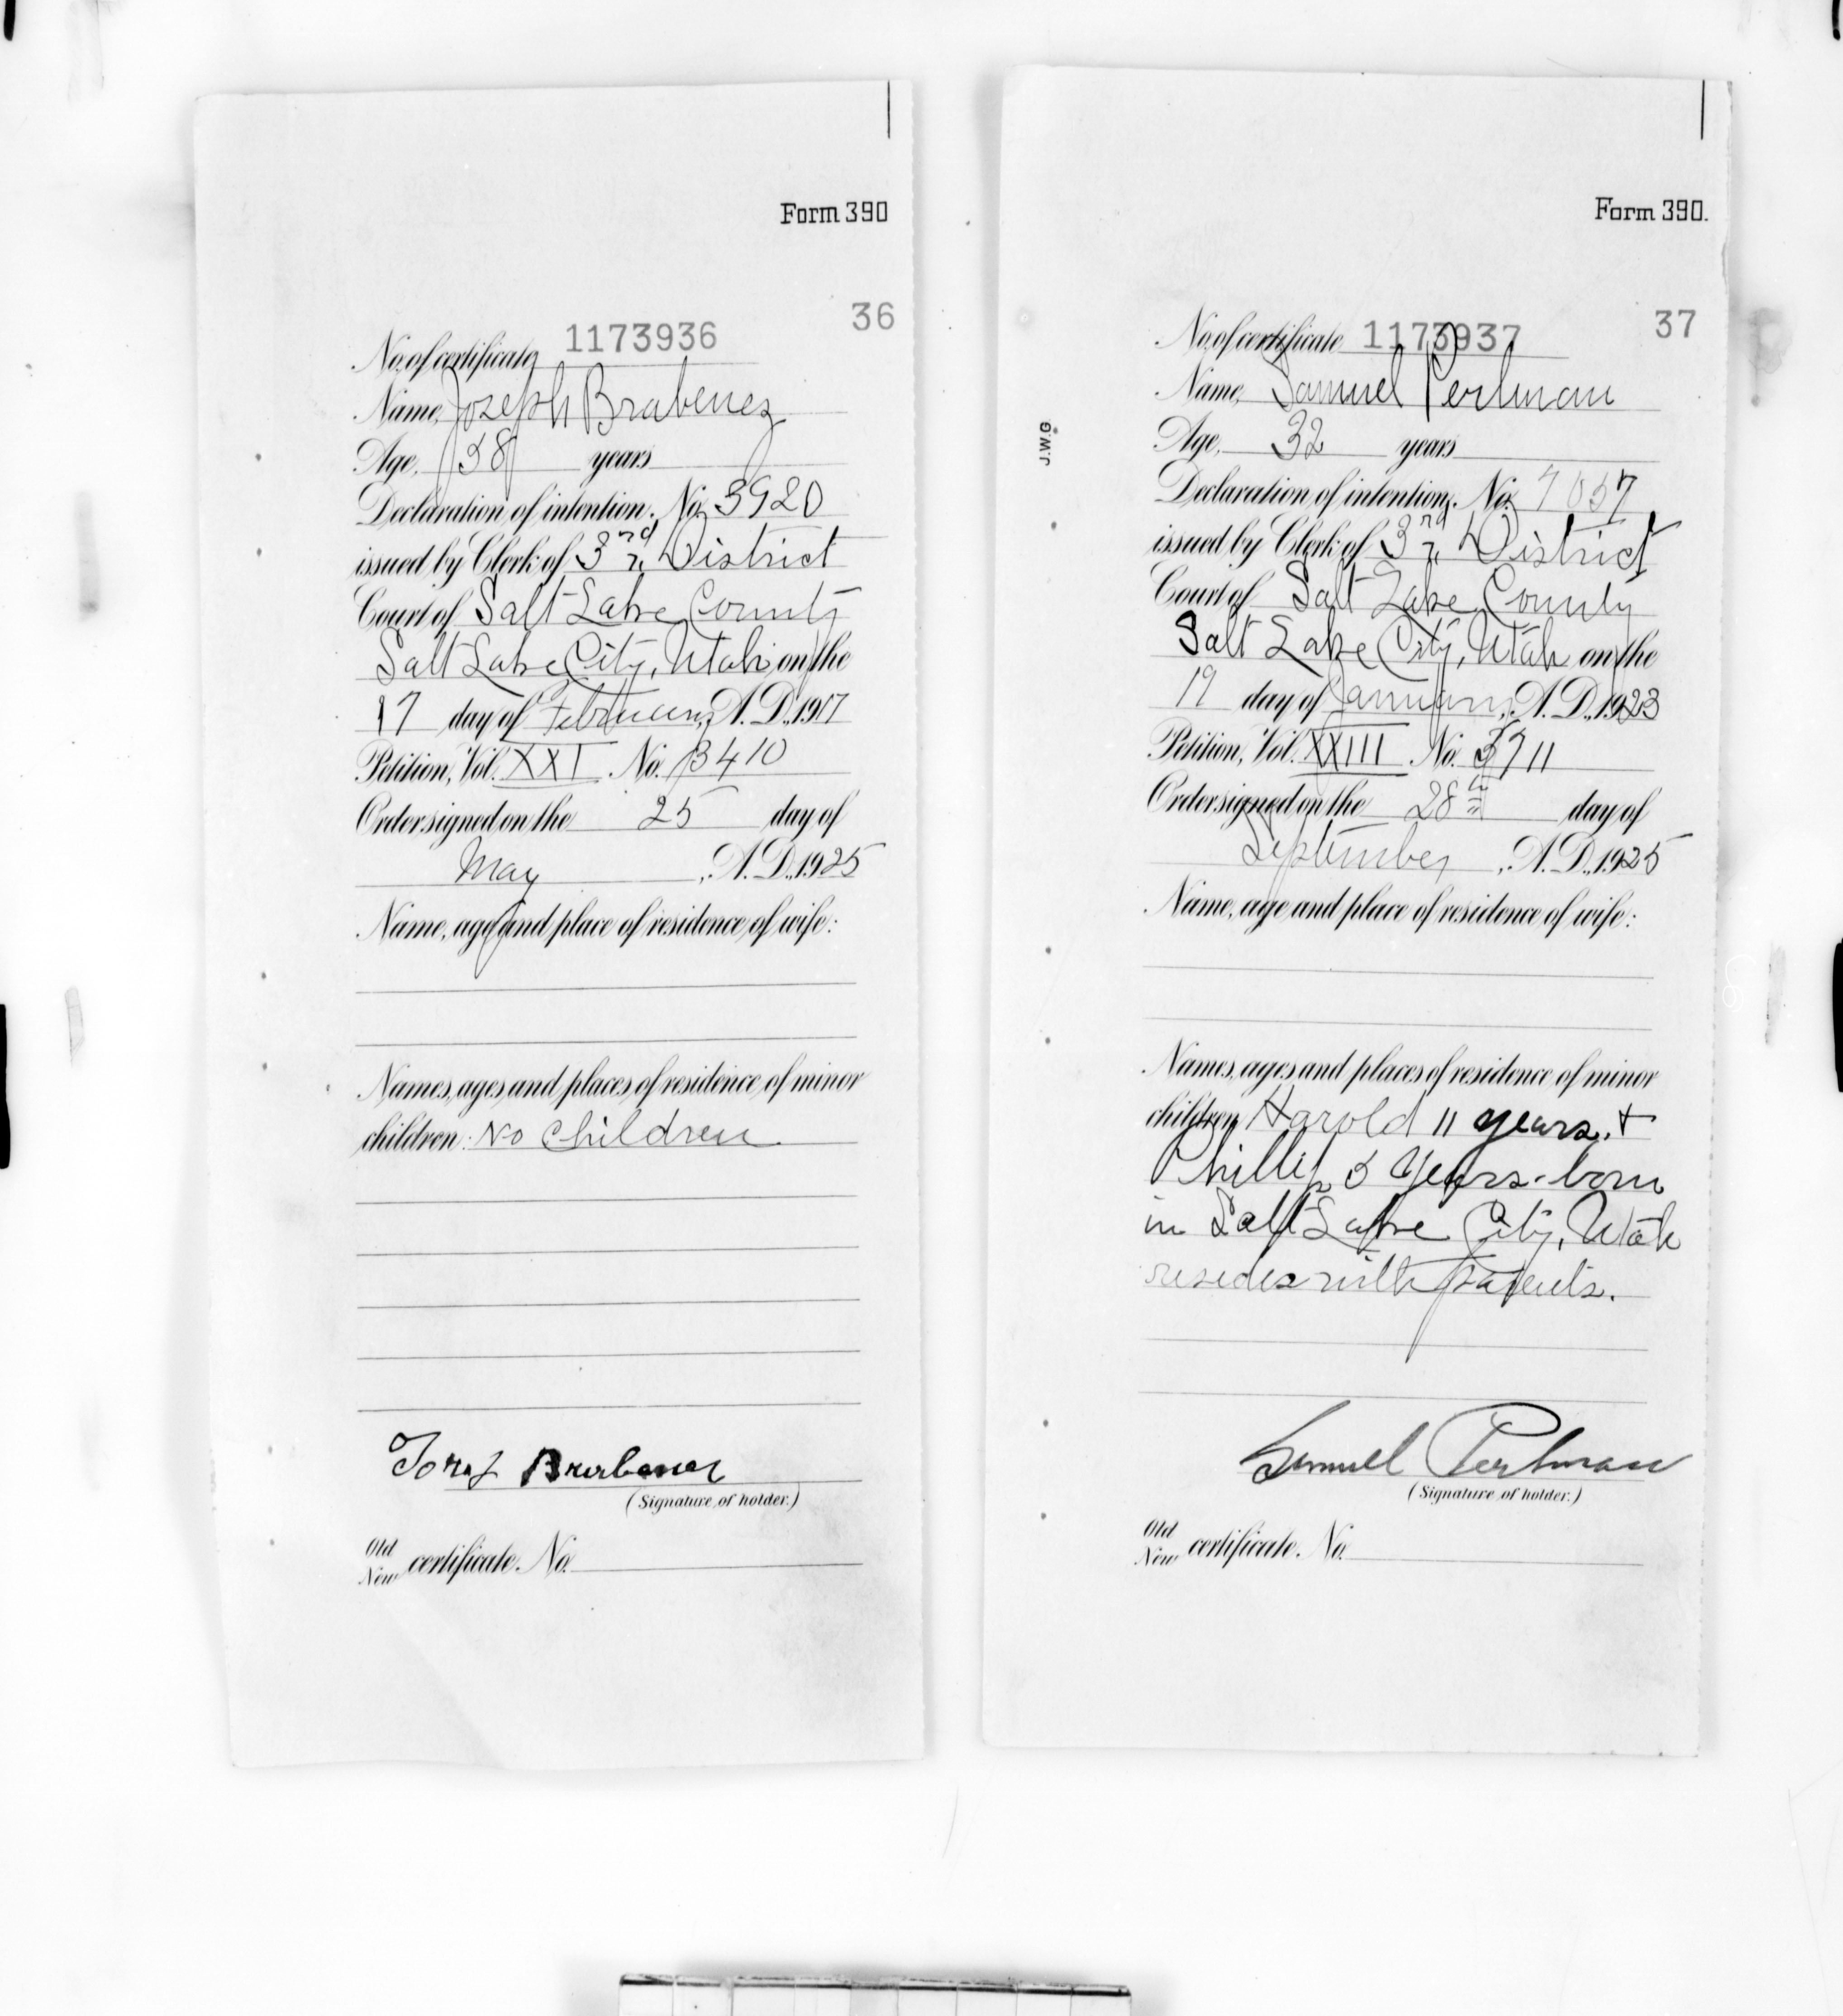 Form 390
36
No. of certificate 1173936
Name, Joseph Brabenez
Age, 38 years
Declaration of intention, No. 3920
issued by Clerk of 3rd District
Court of Salt Lake County
Salt Lake City, Utah on the
17 day of February, A.D., 1917
Petition, Vol. XXI No. 3410
Order signed on the 25 day of
May, A.D., 1925
Name, age and place of residence of wife:
Names, ages and places of residence of minor
children: No Children
(Signature of holder.)
Old
New certificate. No.
Form 390.
37
J.W.G.
No. of certificate 1173937
Name, Samuel Perlman
Age, 32 years
Declaration of intention, No.
issued by Clerk of 3rd District
Court of Salt Lake County
Salt Lake City, Utah on the
19 day of January, A.D., 1923
Petition, Vol. XXIII No. 3711
Order signed on the 28th day of
September, A.D., 1925
Name, age and place of residence of wife:
Names, ages and places of residence of minor
children, Harold 11 years, +
Phillip 5 years. born
in Salt Lake City, Utah
resides with parents.
Samuel Perlman
(Signature of holder.)
Old
New certificate. No.